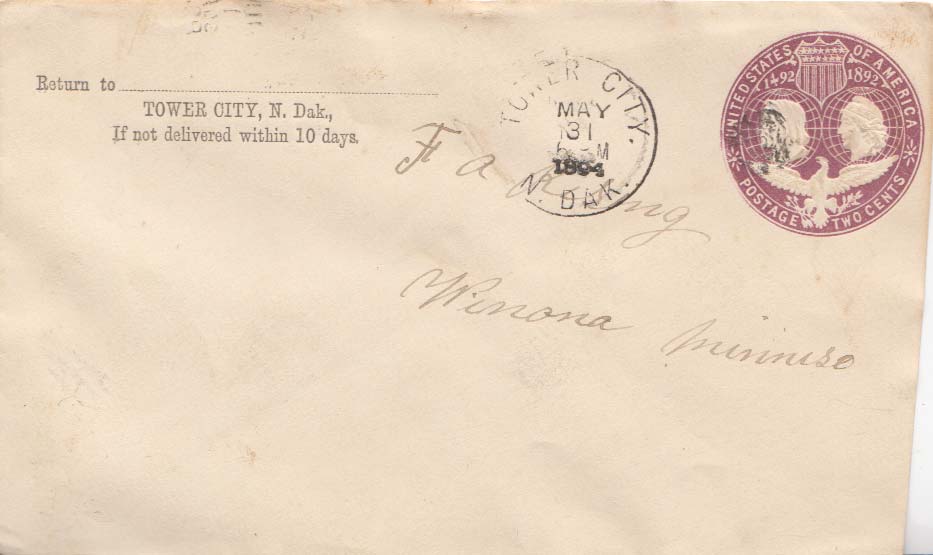 Return to
TOWER CITY, N. Dak.,
If not delivered within 10 days.
TOWER CITY.
MAY
31
M
1894
N. DAK.
UNITED STATES OF AMERICA
1492 1892
POSTAGE TWO CENTS
F A
Winona Minniso